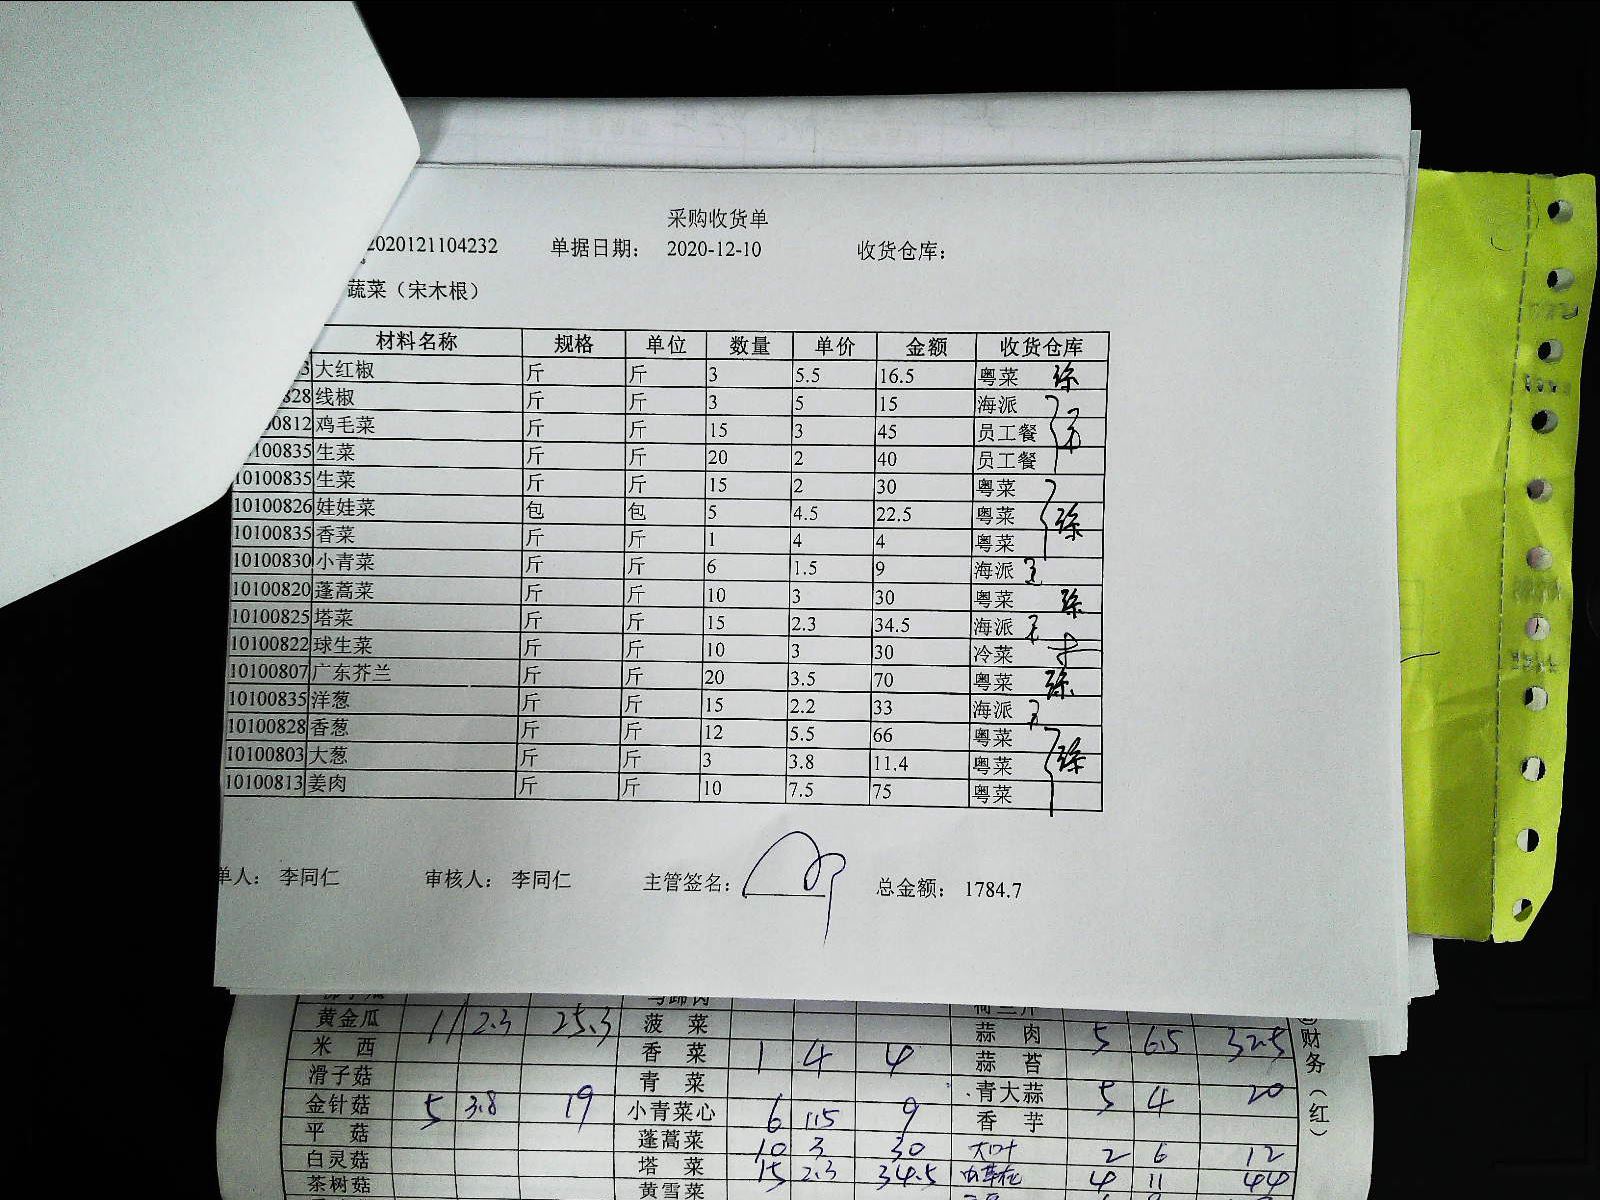 采购收货单
2020121104232 单据日期： 2020-12-10 收货仓库：
蔬菜（宋木根）
材料名称 规格 单位 数量 单价 金额 收货仓库
3 大红椒 斤 斤 3 5.5 16.5 粤菜
828 线椒 斤 斤 3 5 15 海派
00812 鸡毛菜 斤 斤 15 3 45 员工餐
100835 生菜 斤 斤 20 2 40 员工餐
10100835 生菜 斤 斤 15 2 30 粤菜
10100826 娃娃菜 包 包 5 4.5 22.5 粤菜
10100835 香菜 斤 斤 1 4 4 粤菜
10100830 小青菜 斤 斤 6 1.5 9 海派
10100820 蓬蒿菜 斤 斤 10 3 30 粤菜
10100825 塔菜 斤 斤 15 2.3 34.5 海派
10100822 球生菜 斤 斤 10 3 30 冷菜
10100807 广东芥兰 斤 斤 20 3.5 70 粤菜
10100835 洋葱 斤 斤 15 2.2 33 海派
10100828 香葱 斤 斤 12 5.5 66 粤菜
10100803 大葱 斤 斤 3 3.8 11.4 粤菜
10100813 姜肉 斤 斤 10 7.5 75 粤菜
单人： 李同仁 审核人： 李同仁 主管签名： 总金额： 1784.7
黄金瓜 11 2.3 25.3 菠菜 蒜肉 5 6.5 32.5
米西 香菜 1 4 4 蒜苔
滑子菇 青菜 青大蒜 5 4 20
金针菇 5 3.8 19 小青菜心 6 1.5 9 香芋
平菇 蓬蒿菜 10 3 30 大叶 2 6 12
白灵菇 塔菜 15 2.3 34.5 4 11 44
茶树菇 黄雪菜
财务（红）